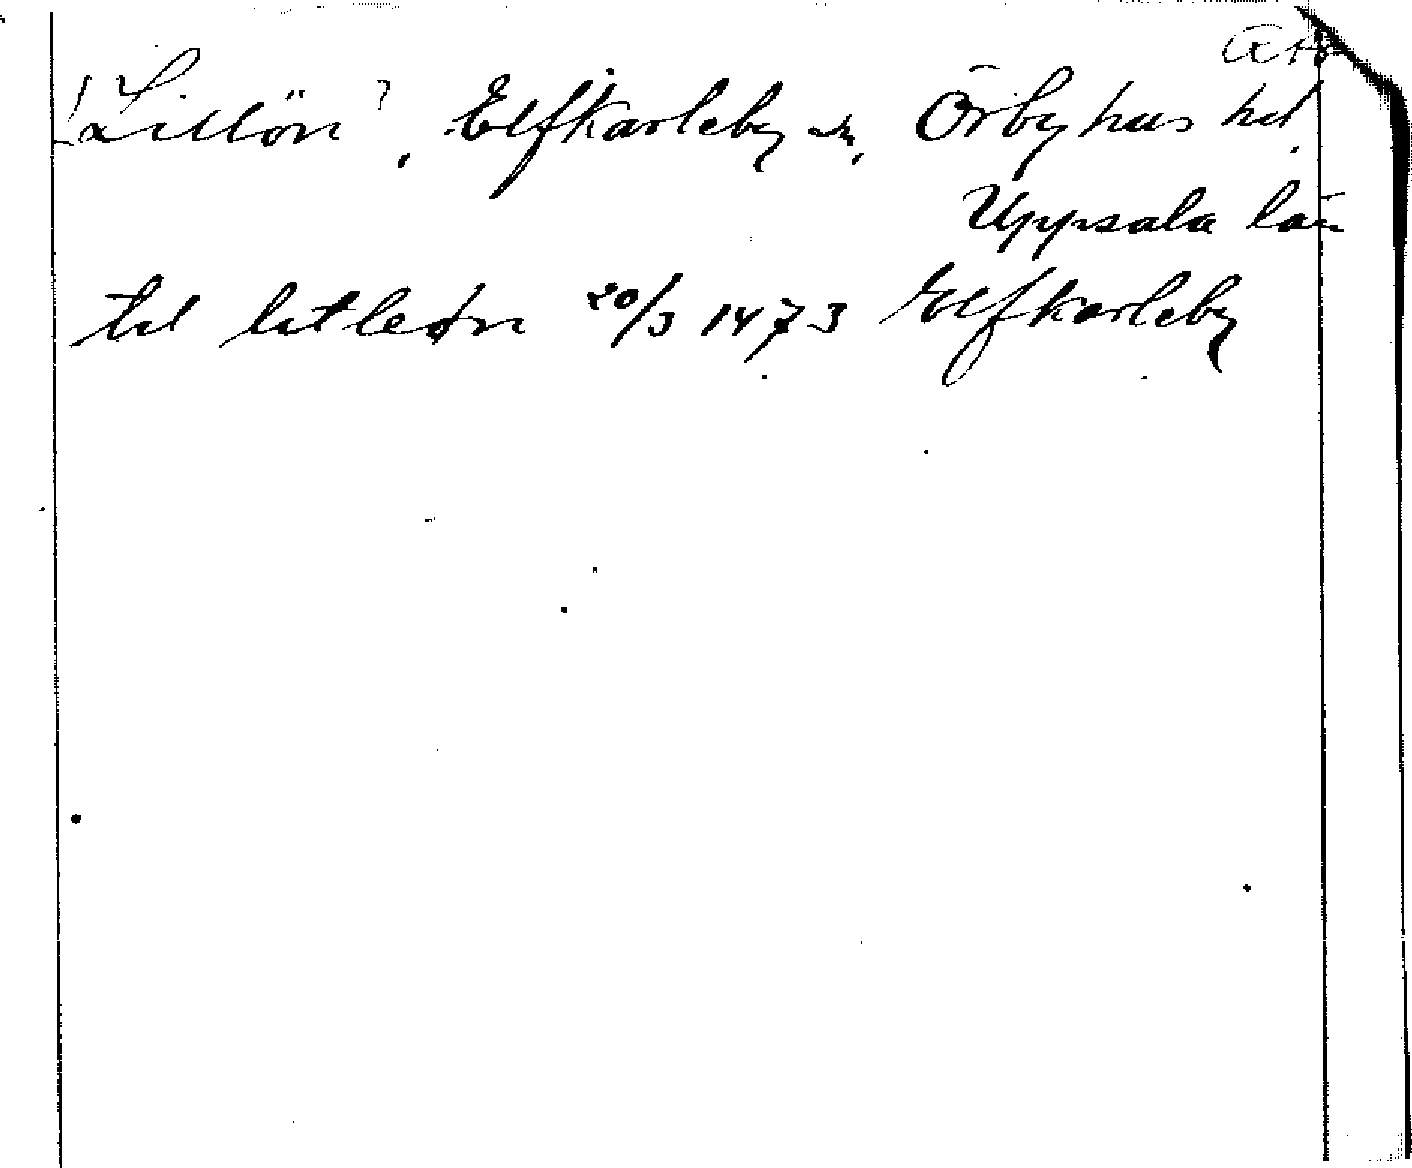 Lillön ?, Elfkarleby sn, Örbyhus hd.
Uppsala län
til litleøn 20/3 1473 Elfkarleby